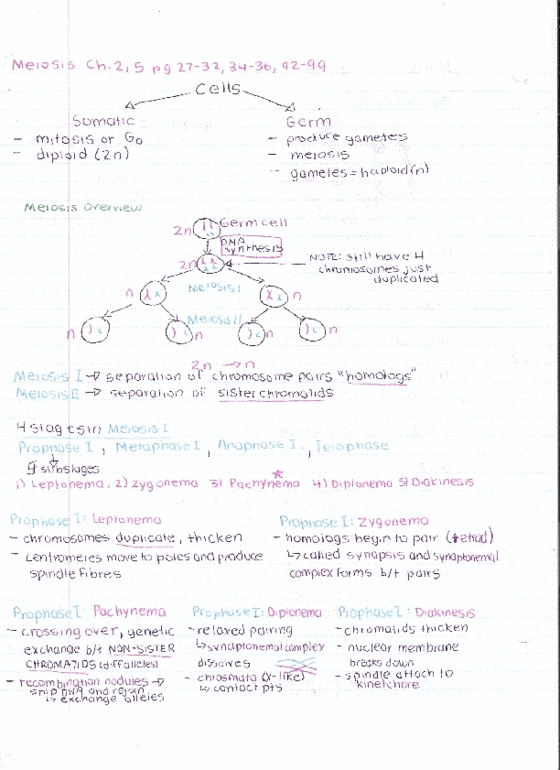 Meiosis Ch. 2, 5 pg 27-32, 34-36, 92-99
Cells
Somatic
- mitosis or G0
- diploid (2n)
Germ
- produce gameters
- meiosis
- gametes = haploid (n)
Meiosis Overview
2n Germ cell
DNA synthesis
2n
NOTE: still have 4
chromosomes just
duplicated
n Meiosis I n
Meiosis II
n n n n
2n → n
Meiosis I → separation of chromosome pairs "homologs"
Meiosis II → separation of sister chromatids
4 stages in Meiosis I
Prophase I, Metaphase I, Anaphase I, Telophase
5 substages
1) Leptonema, 2) Zygonema 3) Pachynema 4) Diplonema 5) Diakinesis
Prophase I: Leptonema
- chromosomes duplicate, thicken
- centromeres move to poles and produce
spindle fibres
Prophase I: Zygonema
- homologs begin to pair (tetrad)
↳ called synapsis and synaptonemal
complex forms b/t pairs
Prophase I: Pachynema
- crossing over, genetic
exchange b/t NON-SISTER
CHROMATIDS (diff alleles)
- recombination nodules →
snip DNA and rejoin
↳ exchange alleles
Prophase I: Diplonema
- relaxed pairing
↳ synaptonemal complex
dissolves
- chiasmata (x-like)
↳ contact pts
Prophase I: Diakinesis
- chromatids thicken
- nuclear membrane
breaks down
- spindle attach to
kinetchore